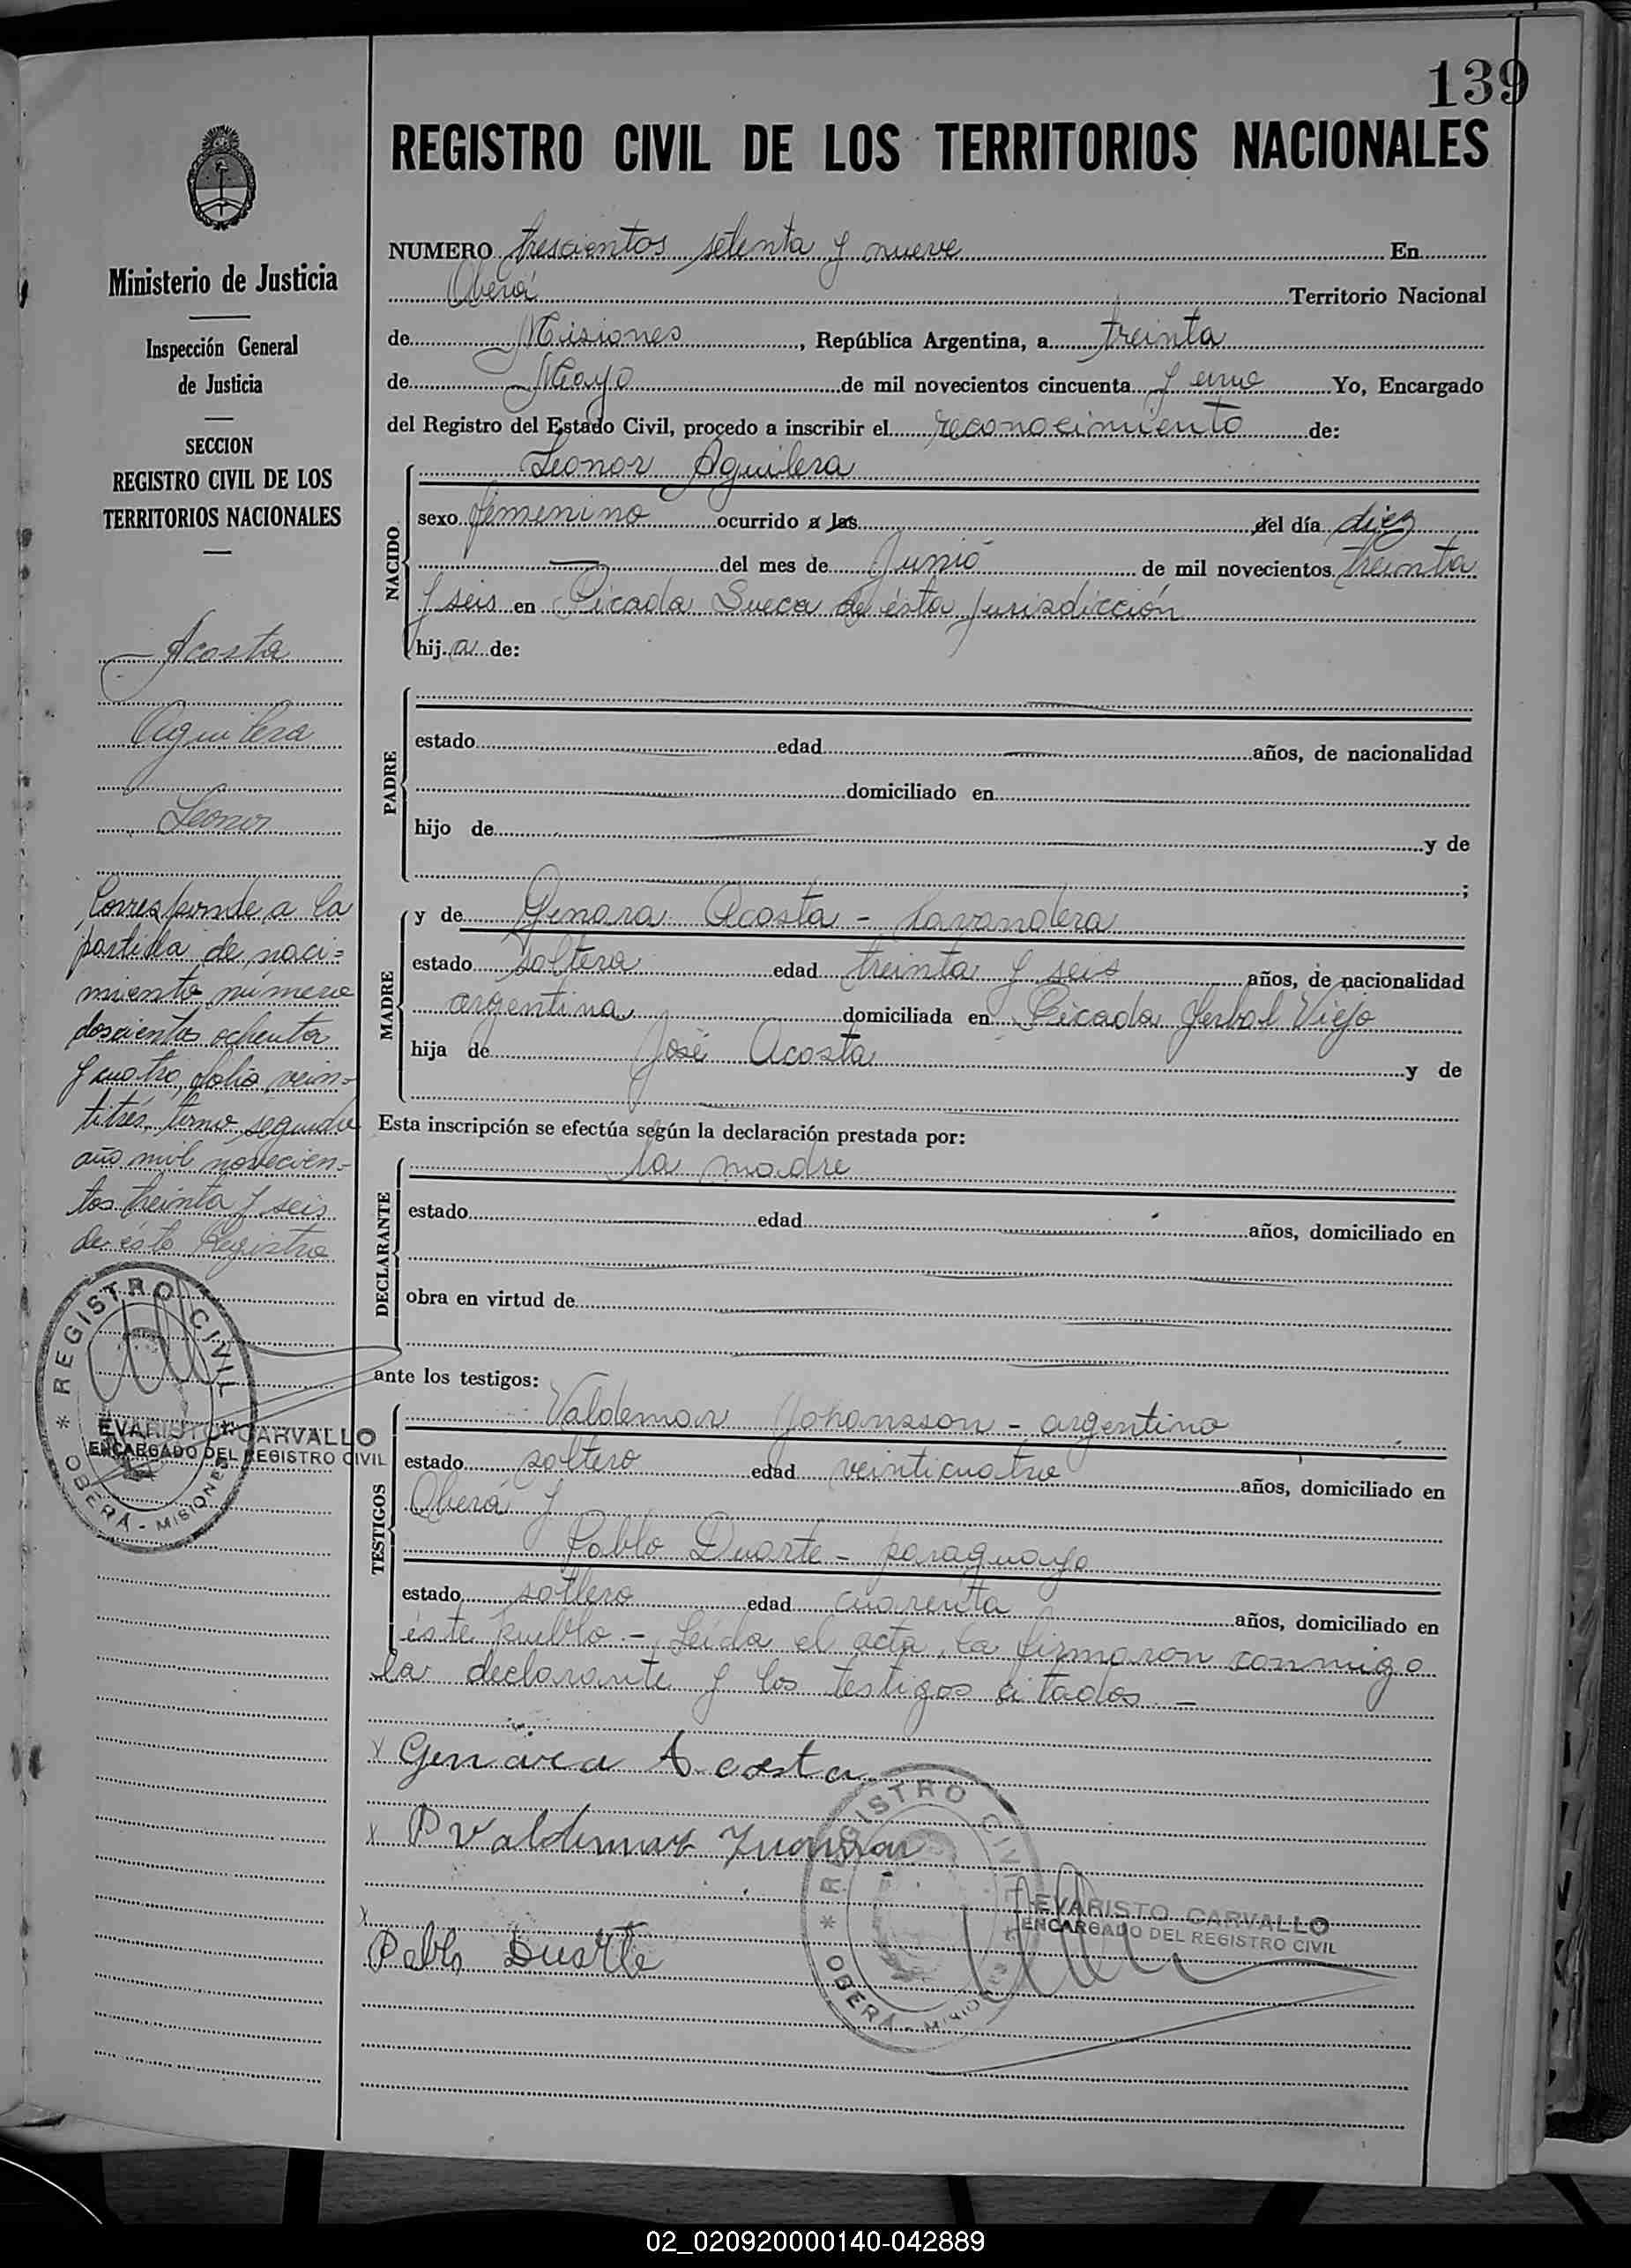 139
REGISTRO CIVIL DE LOS TERRITORIOS NACIONALES
Ministerio de Justicia
Inspección General
de Justicia
SECCION
REGISTRO CIVIL DE LOS
TERRITORIOS NACIONALES
Acosta
Aguilera
Leonor
Corresponde a la
partida de naci=
miento número
doscientos ochenta
y cuatro, folio vein=
titrés, tomo segundo
año mil novecien=
tos treinta y seis
de éste Registro
REGISTRO CIVIL
OBERÁ - MISIONES
EVARISTO CARVALLO
ENCARGADO DEL REGISTRO CIVIL
NUMERO trescientos setenta y nueve En
Oberá Territorio Nacional
de Misiones, República Argentina, a treinta
de Mayo de mil novecientos cincuenta y uno Yo, Encargado
del Registro del Estado Civil, procedo a inscribir el reconocimiento de:
NACIDO
Leonor Aguilera
sexo femenino ocurrido a las del día diez
del mes de Junio de mil novecientos treinta
y seis en Picada Sueca de ésta jurisdicción
hija de:
PADRE
estado edad años, de nacionalidad
domiciliado en
hijo de y de
;
MADRE
y de Genara Acosta - Lavandera
estado soltera edad treinta y seis años, de nacionalidad
argentina domiciliada en Picada Yerbal Viejo
hija de José Acosta y de
Esta inscripción se efectúa según la declaración prestada por:
DECLARANTE
la madre
estado edad años, domiciliado en
obra en virtud de
ante los testigos:
TESTIGOS
Valdemar Johansson - argentino
estado soltero edad veinticuatro años, domiciliado en
Oberá y
Pablo Duarte - paraguayo
estado soltero edad cuarenta años, domiciliado en
éste pueblo - Leída el acta, la firmaron conmigo
la declarante y los testigos citados -
x Genara Acosta
x P Valdemar
x
Pablo Duarte
REGISTRO CIVIL
OBERÁ - MISIONES
EVARISTO CARVALLO
ENCARGADO DEL REGISTRO CIVIL
02_020920000140-042889